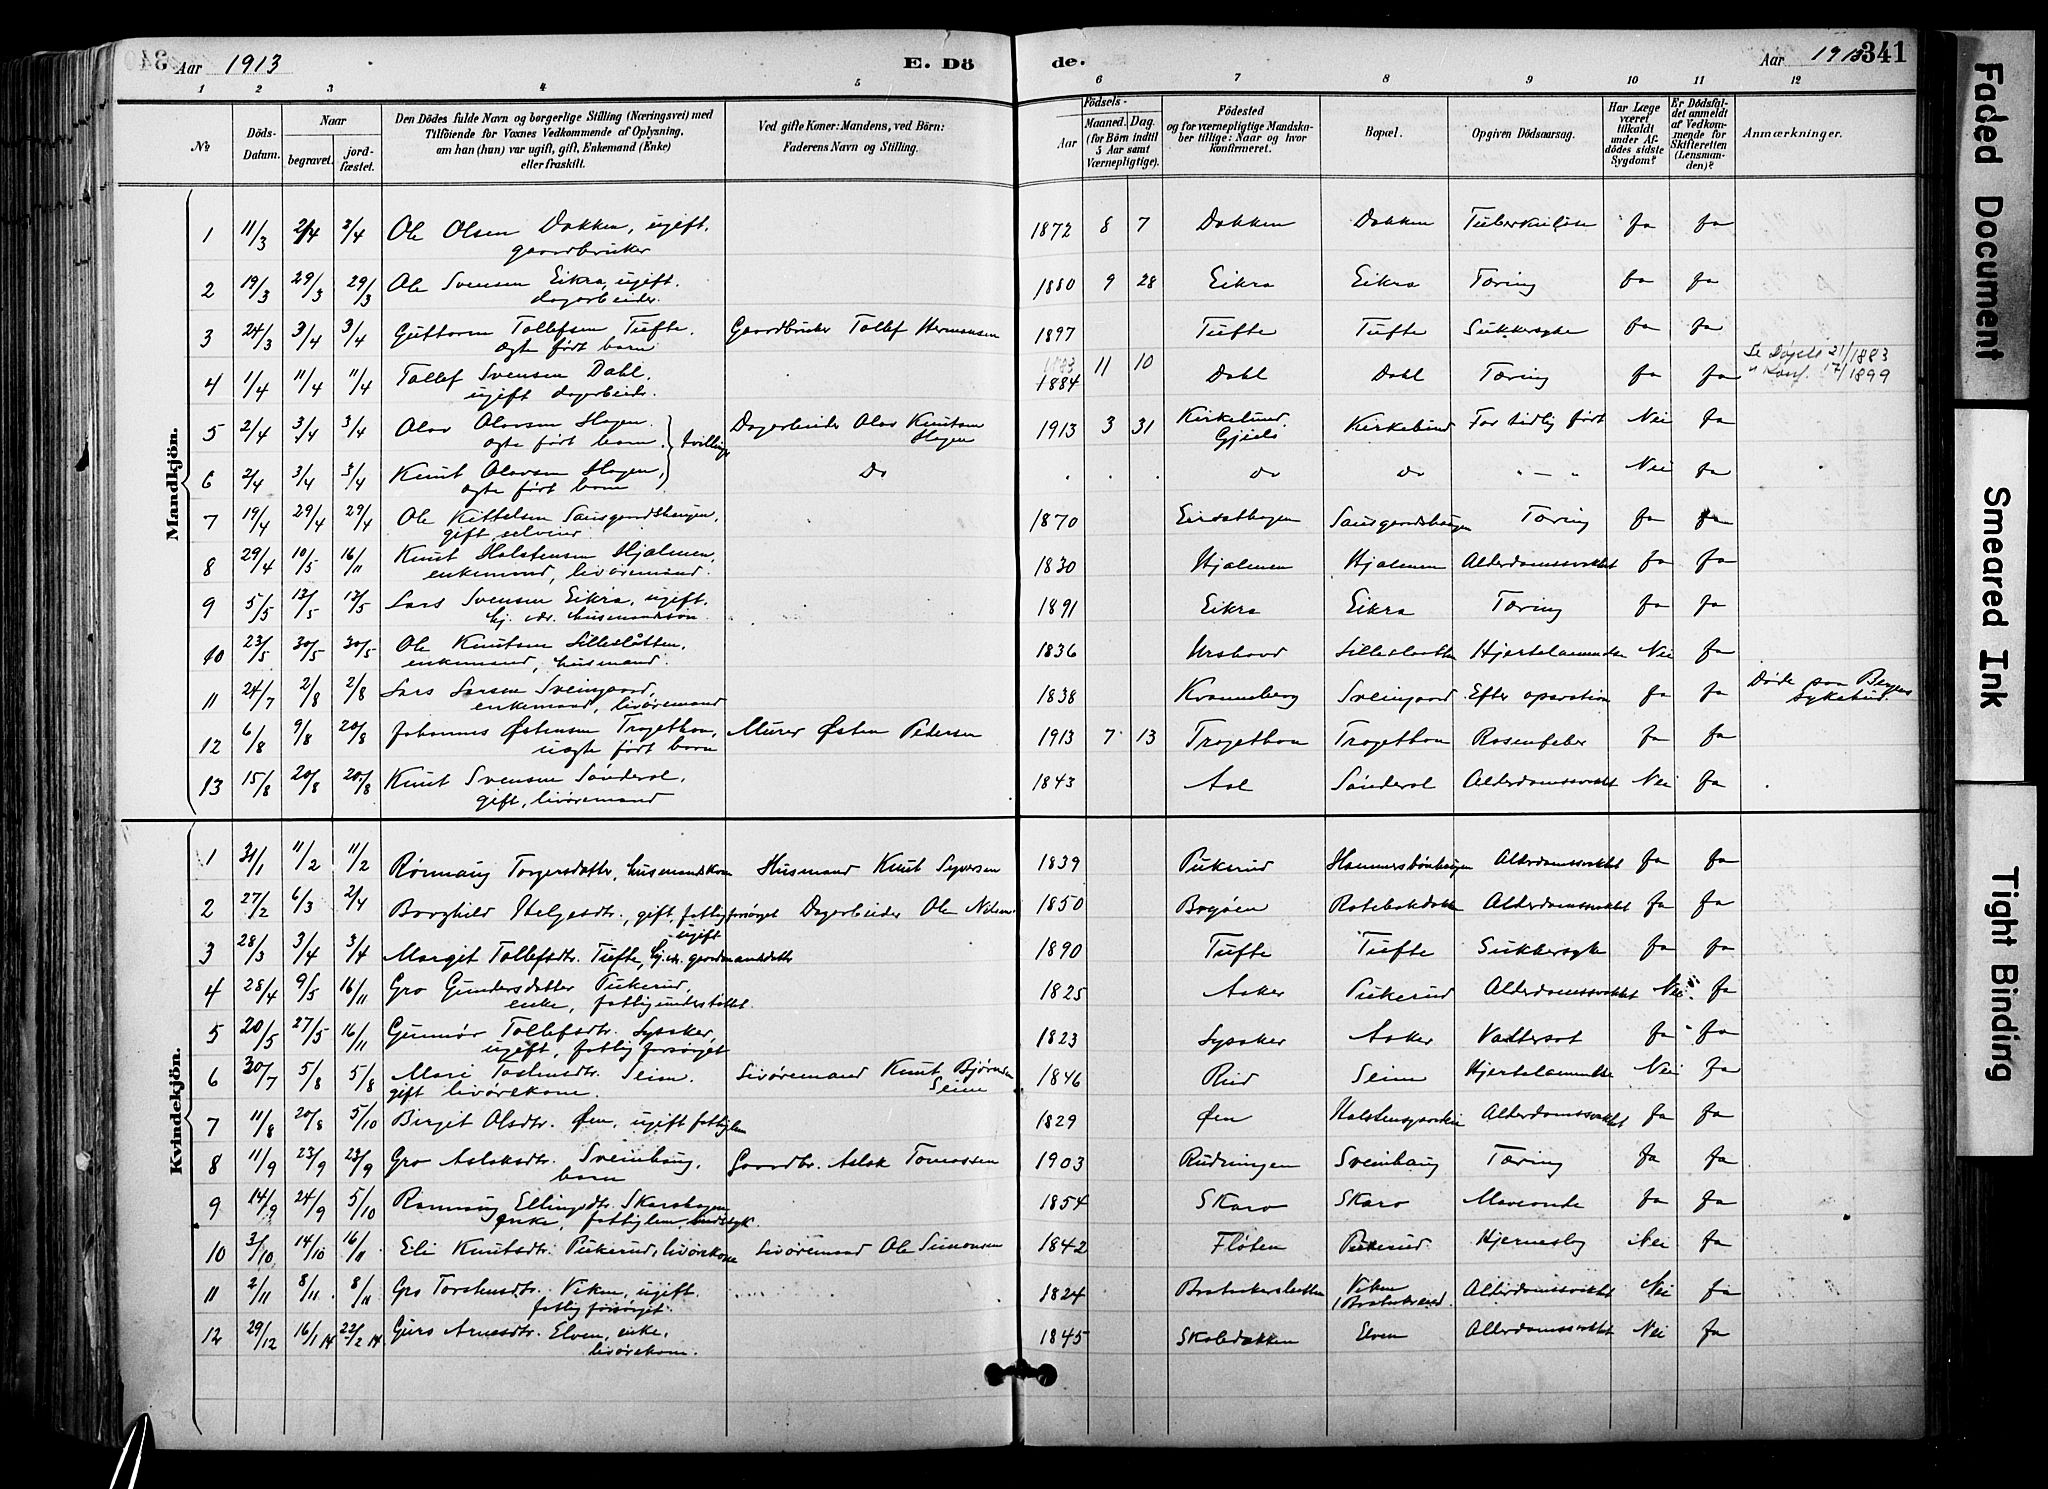 340
Aar 1913
E. Dö
de.
Aar 1913 341
1 2 3 4 5 6 7 8 9 10 11 12
№
Döds-Datum.
Naar
begravet. jord-fæstet.
Den Dödes fulde Navn og borgerlige Stilling (Næringsvei) med
Tilföiende for Voxnes Vedkommende af Oplysning,
om han (hun) var ugift, gift, Enkemand (Enke)
eller fraskilt.
Ved gifte Koner: Mandens, ved Börn:
Faderens Navn og Stilling.
Födsels-
Aar Maaned. Dag.
(for Börn indtil
5 Aar samt
Værnepligtige).
Födested
og for værnepligtige Mandska-
ber tillige: Naar og hvor
konfirmeret.
Bopæl.
Opgiven Dödsaarsag.
Har Læge
været
tilkaldt
under Af-
dödes sidste
Sygdom?
Er Dödsfal-
det anmeldt
af Vedkom-
mende for
Skifteretten
(Lensman-
den)?
Anmærkninger.
Mandkjön.
1 11/3 2/4 3/4 Ole Olsen Dokken, ugift, 1872 8 7 Dokken Dokken Tuberkulose ja ja
gaardbruker
2 19/3 29/3 29/3 Ole Svensen Eikra, ugift. 1880 9 28 Eikra Eikra Tæring ja ja
dagarbeider.
3 24/3 3/4 3/4 Guttorm Tollefsen Tufte. Gaardbruker Tollef Hermansen 1897 Tufte Tufte Sukkersyke ja ja
ægte født barn
4 1/4 11/4 11/4 Tollef Svensen Dahl. 1883 1884 11 10 Dahl Dahl Tæring ja ja Se Døpte 21/1883
ugift dagarbeider. " Konf. 17/1899
5 2/4 3/4 3/4 Olav Olavsen Hagen. Dagarbeider Olav Knutsen Hagen 1913 3 31 Kirkelund Gjeilo Kirkelund For tidlig født Nei ja
ægte født barn
6 2/4 3/4 3/4 Knut Olavsen Hagen, Do do do " — " Nei ja
ægte født barn
7 19/4 29/4 29/4 Ole Kittelsen Sausgaardshaugen, 1870 Sausgaardshaugen Tæring ja ja
gift
8 29/4 10/5 16/11 Knut Holstensen Hjalmen, 1830 Hjalmen Hjalmen Alderdomssvakhet ja ja
enkemand, livøremand.
9 5/5 13/5 13/5 Lars Svensen Eikra, ugift. 1891 Eikra Eikra Tæring ja ja
hj. v. husmandssøn
10 23/5 30/5 30/5 Ole Knutsen Lilleslåtten, 1836 Lilleslaatten Hjertelammelse Nei ja
enkemand, husmand.
11 24/7 2/8 2/8 Lars Larsen Sveingaard, 1838 Kvanneberg Sveingaard Efter operation ja ja Døde paa Bergens
enkemand, livøremand Sykehus.
12 6/8 9/8 20/8 Johannes Østensen Trogethon, Murer Østen Pedersen 1913 7 13 Trogethon Trogethon Rosenfeber ja ja
uægte født barn
13 15/8 20/8 20/8 Knut Svensen Sønderol. 1843 Aal Sønderol Alderdomssvakhet Nei ja
gift, livøremand
Kvindekjön.
1 31/1 11/2 11/2 Rønnaug Torgersdatter, husmandskone Husmand Knut Syversen 1839 Pukerud Alderdomssvakhet ja ja
2 27/2 6/3 2/4 Borghild Helgesdtr., gift, fattigforsørget Dagarbeider Ole Nilsen 1850 Bøgøen Alderdomssvakhet ja ja
3 28/3 3/4 3/4 Margit Tollefsdtr. Tufte, ugift hj. v. gardmansdatter 1890 Tufte Tufte Sukkersyke ja ja
4 28/4 9/5 16/11 Gro Gundersdatter Pukerud, 1825 Aaker Pukerud Alderdomssvakhet Nei ja
enke, fattigunderstøttet.
5 20/5 27/5 16/11 Gunnør Tollefsdtr. Sysaker, 1823 Sysaker Aaker Vattersot ja ja
ugift, fattigforsørget
6 30/7 5/8 5/8 Mari Tostensdtr. Seim. Livøremand Knut Bjørnsen Seim 1846 Rud Seim Hjertelammelse Nei ja
gift livørekone.
7 11/8 20/8 5/10 Birgit Olsdtr. Øen, ugift fattiglem 1829 Øen Alderdomssvakhet ja ja
8 11/9 23/9 23/9 Gro Aslaksdtr. Sveinhaug, Gaardbr. Aslak Tomassen 1903 Rudningen Sveinhaug Tæring ja ja
barn
9 14/9 24/9 5/10 Rønnaug Ellingsdtr. Skarshagen 1854 Skaro Skaro Maveonde ja ja
enke, fattiglem, sindssyk.
10 3/10 14/10 16/11 Eli Knutsdtr. Pukerud, livørekone Livøremand Ole Simonsen 1842 Fløten Pukerud Hjerneslag Nei ja
11 2/11 8/11 8/11 Gro Torstensdtr. Viken, ugift. 1824 Viken Alderdomssvakhet Nei ja
fattigforsørget.
12 29/12 16/1 14 22/2 14 Guro Arnesdtr. Elven, enke, 1845 Skoledokken Elven Alderdomssvakhet Nei ja
livørekone.
Faded Document
Smeared Ink
Tight Binding